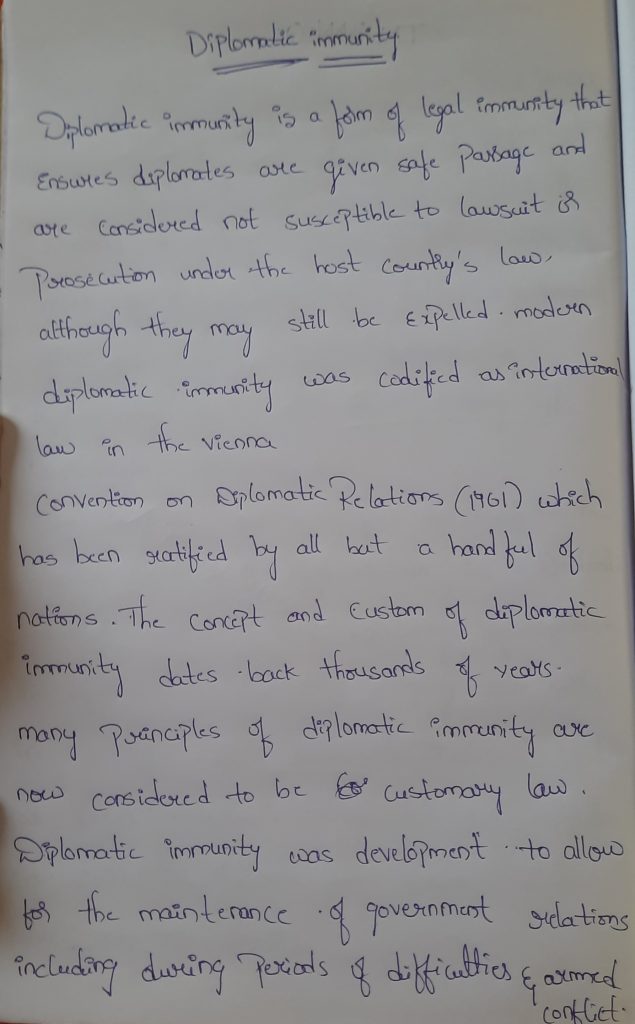 Diplomatic immunity
Diplomatic immunity is a form of legal immunity that
Ensures diplomates are given safe Passage and
are considered not susceptible to lawsuit or
Prosecution under the host country's law,
although they may still be Expelled. modern
diplomatic immunity was codified as international
law in the vienna
Convention on Diplomatic Relations (1961) which
has been ratified by all but a handful of
nations. The concept and custom of diplomatic
immunity dates back thousands of years.
many Principles of diplomatic immunity are
now considered to be customary law.
Diplomatic immunity was development to allow
for the mainterance of government relations
including during Periods of difficulties & armed
conflict.